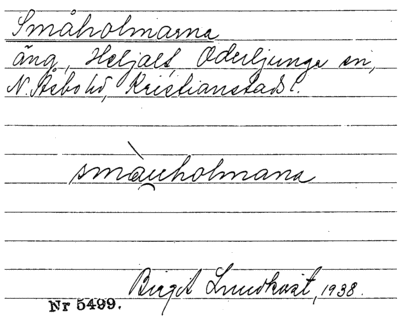 Småholmarna
äng, Heljalt, Oderljunga sn,
N. Åsbo hd, Kristianstads l.
småu̯holmana
Birgit Lundkvist, 1938.
Nr 5499.